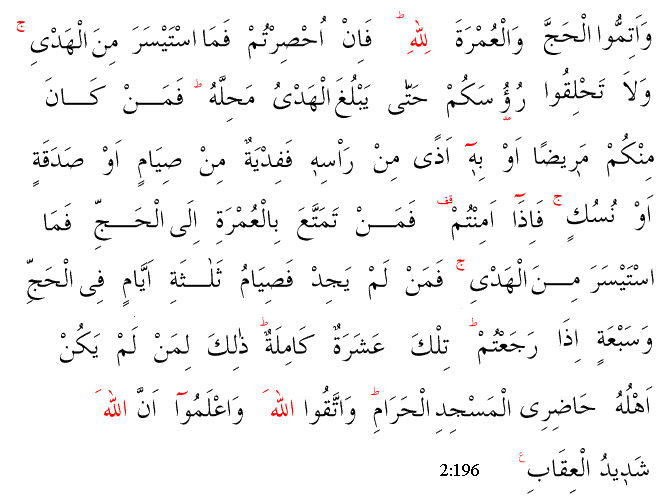 وَاَتِمُّوا الْحَجَّ وَالْعُمْرَةَ لِلّٰهِ ؕ فَاِنْ اُحْصِرْتُمْ فَمَا اسْتَيْسَرَ مِنَ الْهَدْىِ ۚ
وَلَا تَحْلِقُوْا رُؤُسَكُمْ حَتّٰى يَبْلُغَ الْهَدْىُ مَحِلَّهٗ ؕ فَمَنْ كَانَ
مِنْكُمْ مَّرِيضًا اَوْ بِهٖۤ اَذًى مِنْ رَاْسِهٖ فَفِدْيَةٌ مِنْ صِيَامٍ اَوْ صَدَقَةٍ
اَوْ نُسُكٍ ۚ فَاِذَاۤ اَمِنْتُمْ ۥقف فَمَنْ تَمَتَّعَ بِالْعُمْرَةِ اِلَى الْحَجِّ فَمَا
اسْتَيْسَرَ مِنَ الْهَدْىِ ۚ فَمَنْ لَمْ يَجِدْ فَصِيَامُ ثَلٰثَةِ اَيَّامٍ فِى الْحَجِّ
وَسَبْعَةٍ اِذَا رَجَعْتُمْ ؕ تِلْكَ عَشَرَةٌ كَامِلَةٌ ؕ ذٰلِكَ لِمَنْ لَمْ يَكُنْ
اَهْلُهٗ حَاضِرِى الْمَسْجِدِ الْحَرَامِ ؕ وَاتَّقُوا اللّٰهَ وَاعْلَمُوْۤا اَنَّ اللّٰهَ
شَدِيدُ الْعِقَابِ ع 2:196